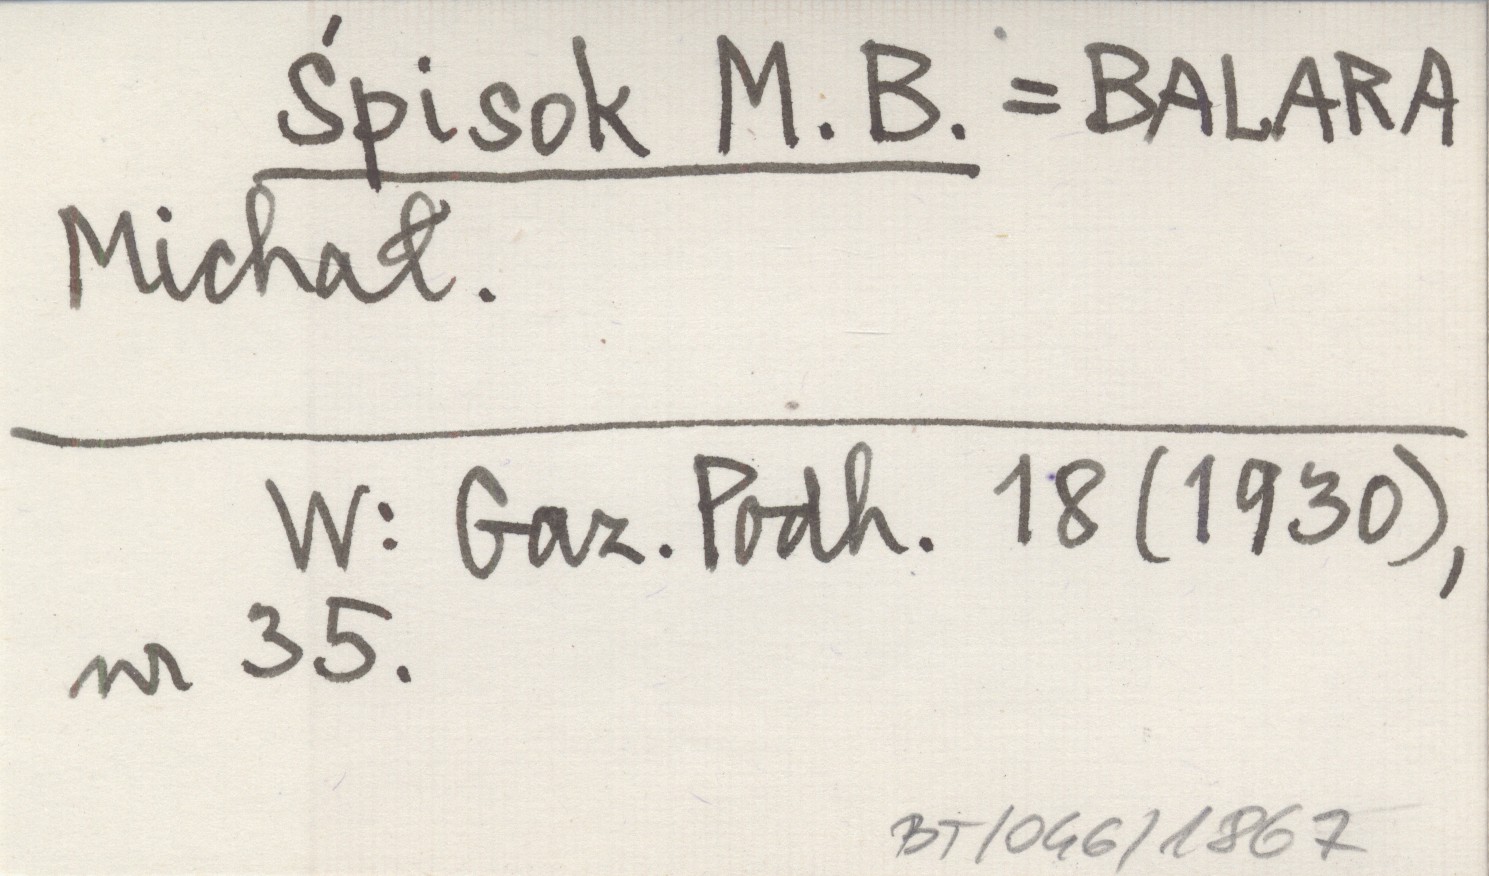 Śpisok M. B. = BALARA
Michał.
W: Gaz. Podh. 18 (1930),
nr 35.
BT/046/1867